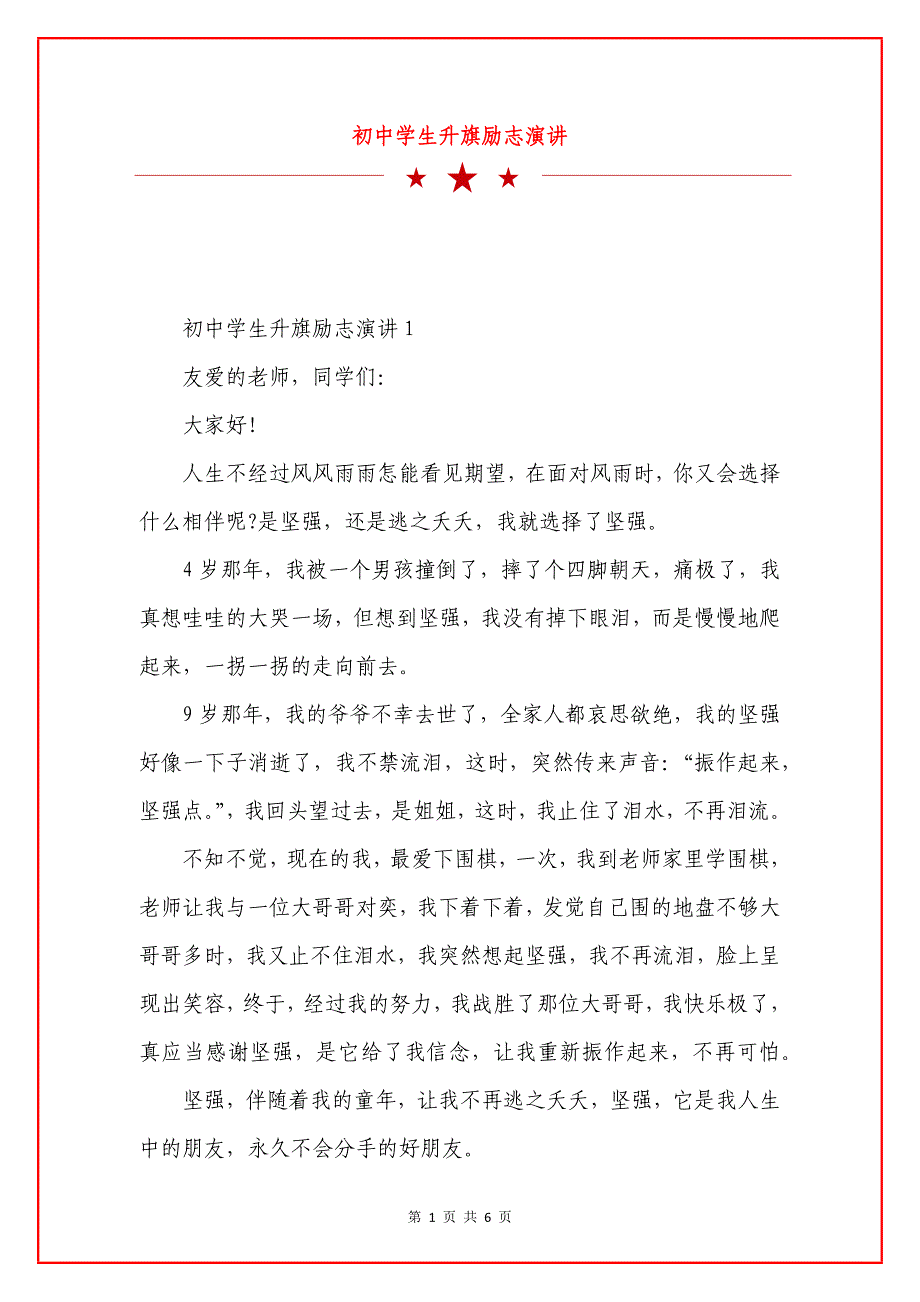 初中学生升旗励志演讲
初中学生升旗励志演讲 1
友爱的老师，同学们：
大家好！
人生不经过风风雨雨怎能看见期望，在面对风雨时，你又会选择
什么相伴呢?是坚强，还是逃之夭夭，我就选择了坚强。
4 岁那年，我被一个男孩撞倒了，摔了个四脚朝天，痛极了，我
真想哇哇的大哭一场，但想到坚强，我没有掉下眼泪，而是慢慢地爬
起来，一拐一拐的走向前去。
9 岁那年，我的爷爷不幸去世了，全家人都哀思欲绝，我的坚强
好像一下子消逝了，我不禁流泪，这时，突然传来声音：“振作起来，
坚强点。”，我回头望过去，是姐姐，这时，我止住了泪水，不再泪流。
不知不觉，现在的我，最爱下围棋，一次，我到老师家里学围棋，
老师让我与一位大哥哥对奕，我下着下着，发觉自己围的地盘不够大
哥哥多时，我又止不住泪水，我突然想起坚强，我不再流泪，脸上呈
现出笑容，终于，经过我的努力，我战胜了那位大哥哥，我快乐极了，
真应当感谢坚强，是它给了我信念，让我重新振作起来，不再可怕。
坚强，伴随着我的童年，让我不再逃之夭夭，坚强，它是我人生
中的朋友，永久不会分手的好朋友。
第 1 页 共 6 页